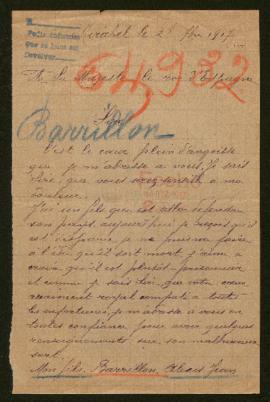 Mirabel le 28 1917
A Sa Majesté le roi d'Espagne
64932
Sire
Barrillon
C'est le cœur plein d'angoisse
que je m'adresse à vous. Je sais
Sire que vous à ma
douleur.
J'ai son fils qui est allé défendre
son pays, aujourd'hui j'apprends qu'il
est disparu, je ne puis me faire
à l'idée qu'il soit mort, j'aime à
croire qu'il est plutôt prisonnier
et comme je sais Sire que votre cœur
vraiment royal compatit à toutes
les infortunes, je m'adresse à vous en
toute confiance pour avoir quelques
renseignements sur son malheureux
sort.
Mon fils, Barrillon, Jean